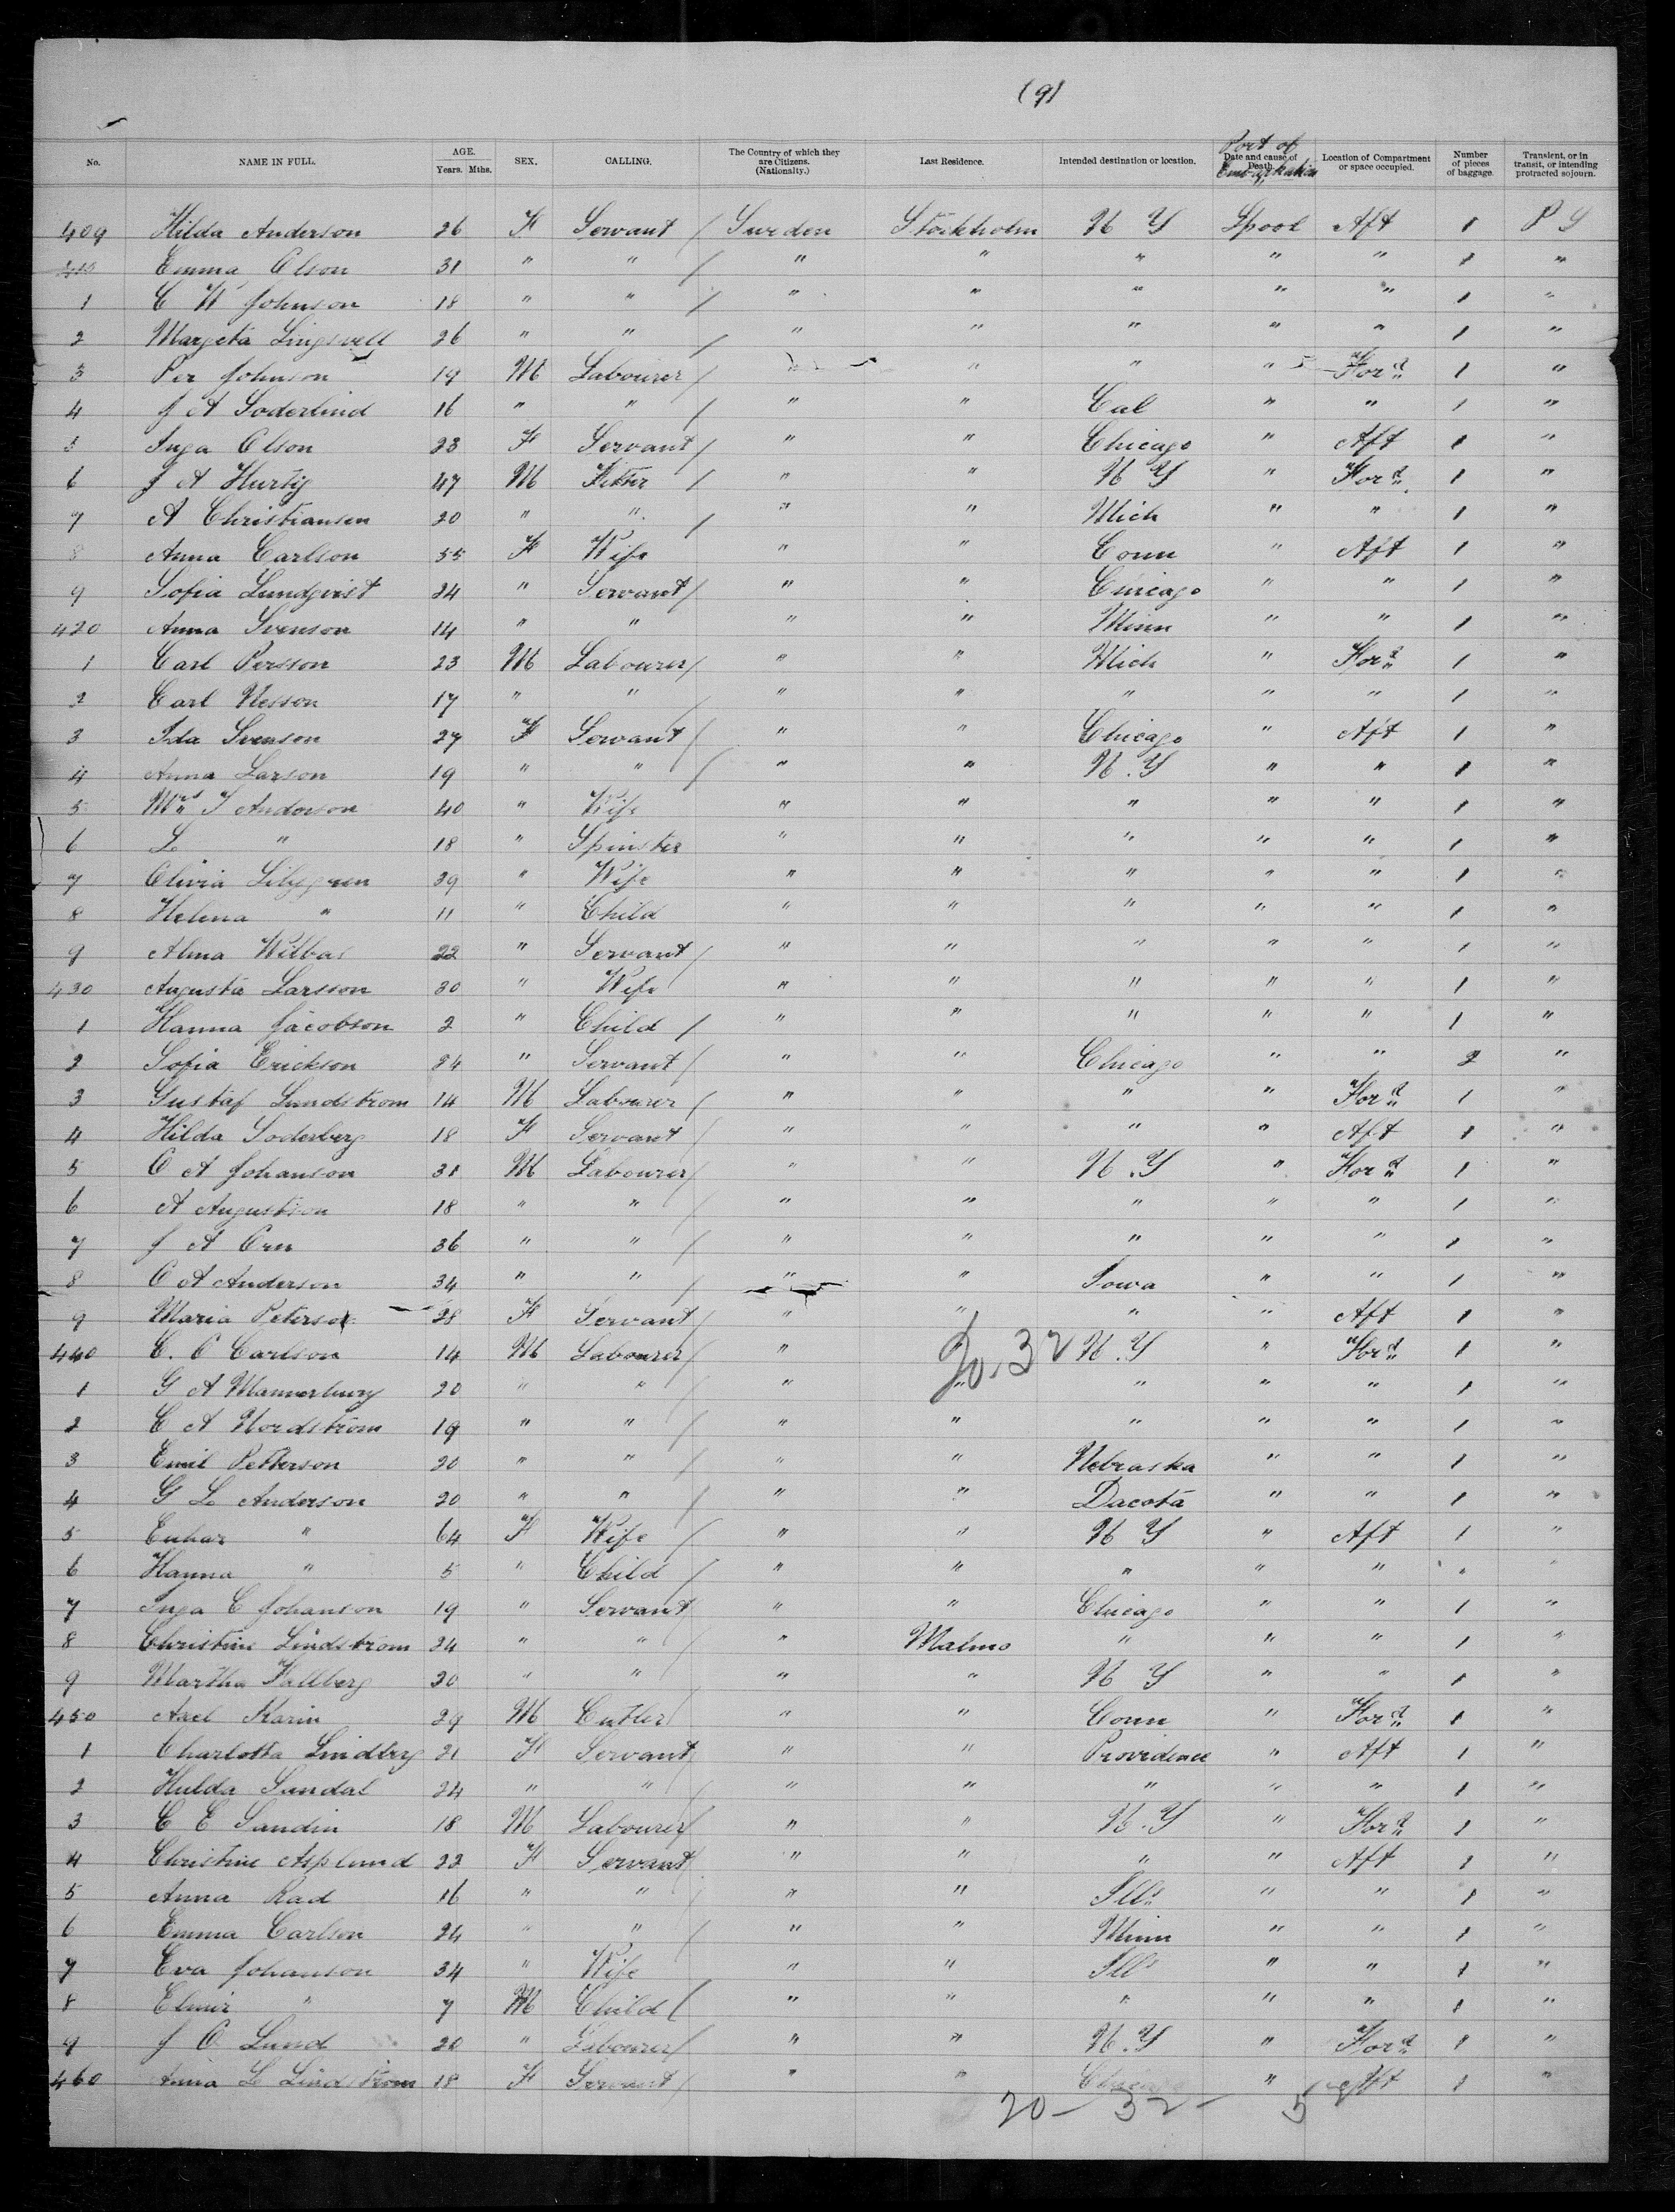 (9)
Port of Embarkation
No. NAME IN FULL. AGE. Years. Mths. SEX. CALLING. The Country of which they are Citizens. (Nationality.) Last Residence. Intended destination or location. Date and cause of Death. Location of Compartment or space occupied. Number of pieces of baggage. Transient, or in transit, or intending protracted sojourn.
409 Hilda Anderson 26 F Servant / Sweden Stockholm N Y Lpool Aft 1 P S
410 Emma Olson 31 " " / " " " " " 1 "
1 C W Johnson 18 " " / " " " " " 1 "
2 Margeta 26 " " / " " " " " 1 "
3 Per Johnson 19 M Labourer / " " " " For'd 1 "
4 J A Soderlind 16 " " / " " Cal " " 1 "
5 Inga Olson 23 F Servant / " " Chicago " Aft 1 "
6 J A Hurtig 47 M Fitter / " " N Y " For'd 1 "
7 A Christiansen 20 " " / " " Mich " " 1 "
8 Anna Carlson 55 F Wife " " Conn " Aft 1 "
9 Sofia Lundqvist 24 " Servant / " " Chicago " " 1 "
420 Anna Svenson 14 " " " " Minn " " 1 "
1 Carl Persson 23 M Labourer / " " Mich " For'd 1 "
2 Carl Nesson 17 " " / " " " " " 1 "
3 Ida Svenson 27 F Servant / " " Chicago " Aft 1 "
4 Anna Larson 19 " " / " " N.Y " " 1 "
5 Mrs I Anderson 40 " Wife " " " " " 1 "
6 L " 18 " Spinster " " " " " 1 "
7 Olivia Lilygren 39 " Wife " " " " " 1 "
8 Helena " 11 " Child " " " " " 1 "
9 Alma Wilbas 22 " Servant / " " " " " 1 "
430 Augusta Larsson 30 " Wife / " " " " " 1 "
1 Hanna Jacobson 2 " Child / " " " " " 1 "
2 Sofia Erickson 24 " Servant / " " Chicago " " 2 "
3 Gustaf Lundstrom 14 M Labourer / " " " " For'd 1 "
4 Hilda Soderberg 18 F Servant / " " " " Aft 1 "
5 O A Johanson 31 M Labourer / " " N.Y " For'd 1 "
6 A Augustson 18 " " / " " " " " 1 "
7 J A Orn 36 " " / " " " " " 1 "
8 O A Anderson 34 " " / " " Iowa " " 1 "
9 Maria Peterson 28 F Servant / " " " " Aft 1 "
440 C. O Carlson 14 M Labourer / " " N.Y " For'd 1 "
20. 32
1 G A 20 " " / " " " " " 1 "
2 C A Nordstrom 19 " " / " " " " " 1 "
3 Emil Petterson 20 " " / " " Nebraska " " 1 "
4 G L Anderson 20 " " / " " Dacota " " 1 "
5 " 64 F Wife / " " N Y " Aft 1 "
6 Hanna " 5 " Child / " " " " " " "
7 Inga C Johanson 19 " Servant / " " Chicago " " 1 "
8 Christine Lindstrom 24 " " / " Malmo " " " 1 "
9 Martha Hallberg 20 " " / " " N Y " " 1 "
450 Axel Karin 29 M Cutler / " " Conn " For'd 1 "
1 Charlotta Lindberg 21 F Servant / " " Providence " Aft 1 "
2 Hulda Sundal 24 " " / " " " " " 1 "
3 C E Sandin 18 M Labourer / " " N.Y " For'd 1 "
4 Christine Asplund 22 F Servant / " " " " Aft 1 "
5 Anna Rad 16 " " / " " Ills " " 1 "
6 Emma Carlson 24 " " / " " Minn " " 1 "
7 Eva Johanson 34 " Wife " " Ills " " 1 "
8 Elmir " 7 M Child / " " " " " 1 "
9 J O Lund 20 " Labourer / " " N.Y " For'd 1 "
460 Anna L Lindstrom 18 F Servant / " " Chicago " Aft 1 "
20 - 32 - 5